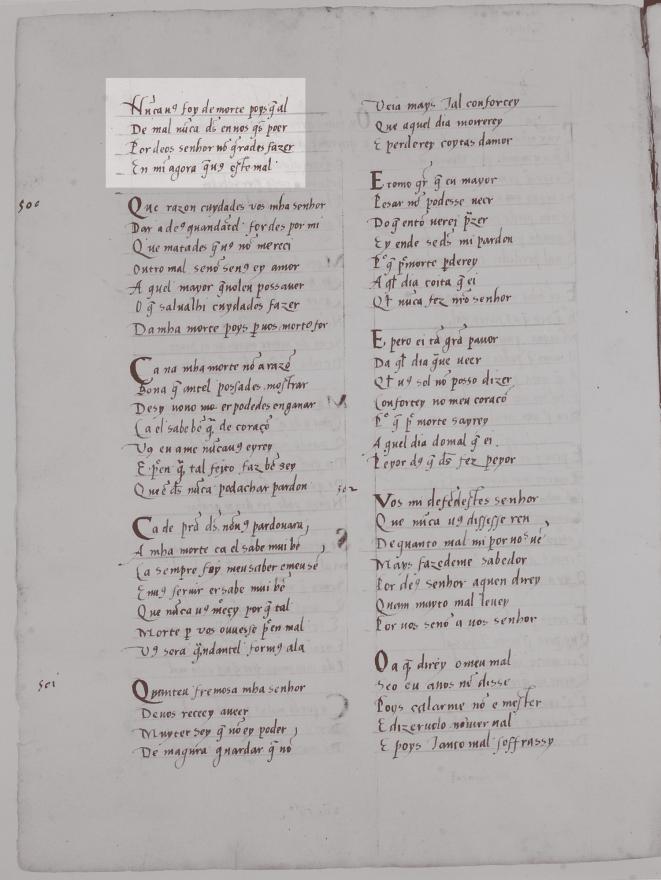 Nũcauꝯ foy de morte poys q̃ al
De mal nũca ds̃ en nos q̃s poer
Por deos senhor nõ q̃rades fazer
En mĩ agora q̃ uꝯ este mal
500
Que razon cuydades vos mha senhor
Dar a deꝯ quandãtel fordes por mi
Que matades q̃ uꝯ nõ mereci
Outro mal senõ senꝯ ey amor
A quel mayor q̃ uoleu possauer
O q̃ saluałhi cuydades fazer
Da mha morte poys p uos morto for
Ca na mha morte nõ a razõ
Bona q̃ antel possades mostrar
Desy uono er podedes enganar
Ca el sabe bẽ q̃ de coraçõ
Vꝯ eu ame nũcauꝯ eyrey
E pẽn q̃ tal feito faz bẽ sey
Que ẽ ds̃ nũca podachar pardon
Ca de prã ds̃ nõ uꝯ pardouara
A mha morte ca el sabe mui bẽ
Ca sempre foy meu saber e meu sẽ
En uꝯ seruir er sabe mui bẽ
Que nũca uꝯ merecy por q̃ tal
Morte p vos ouuesse pẽn mal
Vꝯ sera q̃ndantel formꝯ ala
501
Quanteu fremosa mha senhor
De uos receey aueer
Muyter sey q̃ nõ ey poder
De magora guardar q̃ nõ
Veia mays Tal conforcey
Que aquel dia morrerey
E perderey coytas damor
E como q̃r q̃ eu mayor
Pesar nõ podesse ueer
Do q̃ entõ uerei pzer
Ey ende se ds̃ mi pardon
Po q̃ p morte pderey
A ql̃ dia coita q̃ ei
Ql̃ nũca fez nr̃o senhor
E pero ei tã grã pauor
Da ql̃ dia q̃ ue ueer
Ql̃ uꝯ sol nõ posso dizer
Confortey no meu coraçõ
Po q̃ p morte sayrey
A quel dia do mal q̃ ei
Peyor dꝯ q̃ ds̃ fez peyor
502
Vos mi defẽdestes senhor
Que nũca uꝯ dissesse ren
De quanto mal mi por uos uẽ
Mays fazedeme sabedor
Por deꝯ senhor a quen direy
Quam muyto mal leuey
Por uos senõ a uos senhor
O a q̃ direy o meu mal
Seo eu a uos nõ disse
Poys calarme nõ e mester
E dizeruolo nõ uer ual
E poys Tanto mal soffrassy